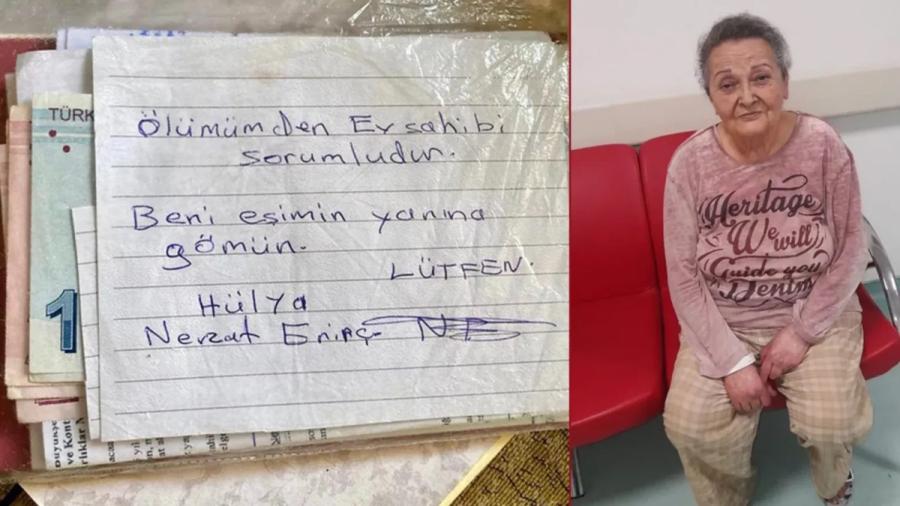 TÜRK
1
Ölümümden Ev sahibi
sorumludur.
Beni eşimin yanına
gömün.
LÜTFEN.
Hülya
Nevzat
ve Kont
Heritage
We will
Guide you
Denims